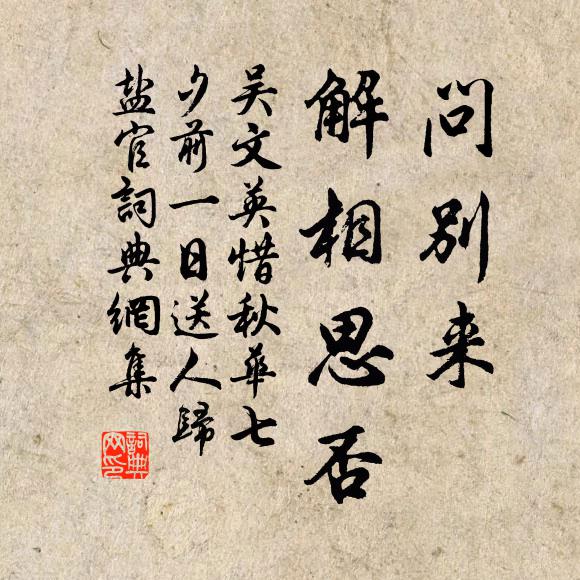 问别来
解相思否
吴文英惜秋華七
夕前一日送人歸
盐官詞典網集
詞典
网印